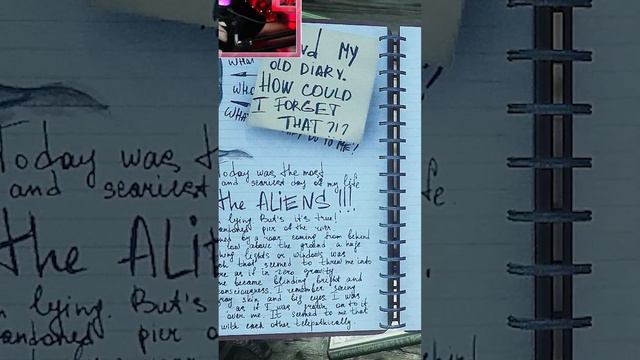 MY
OLD DIARY.
HOW COULD
I FORGET
THAT ?!?
DO TO ME!
Today was the most
and scariest day of my life
the ALIENS!!!
lying. But's it's true!
andoned pier of the
ned by a roar coming from behind
above the ground a huge
lights or windows was
that seemed to threw me into
as if in zero gravity
me became blinding bright and
consciousness. I remember seeing
ray skin and big eyes. I was
as if I was frozen as if
over me. It seemed to me that
with each other telepathically.
Today was t
and scariest
the ALI
lying. But's
andoned pier o
fe.